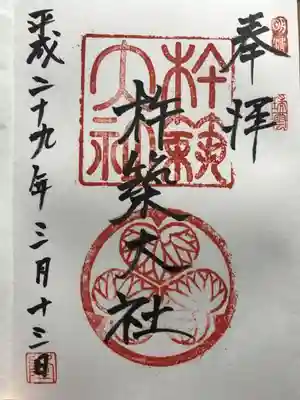 奉拝
杵築大社
平成二十九年三月十三日
杵築大社